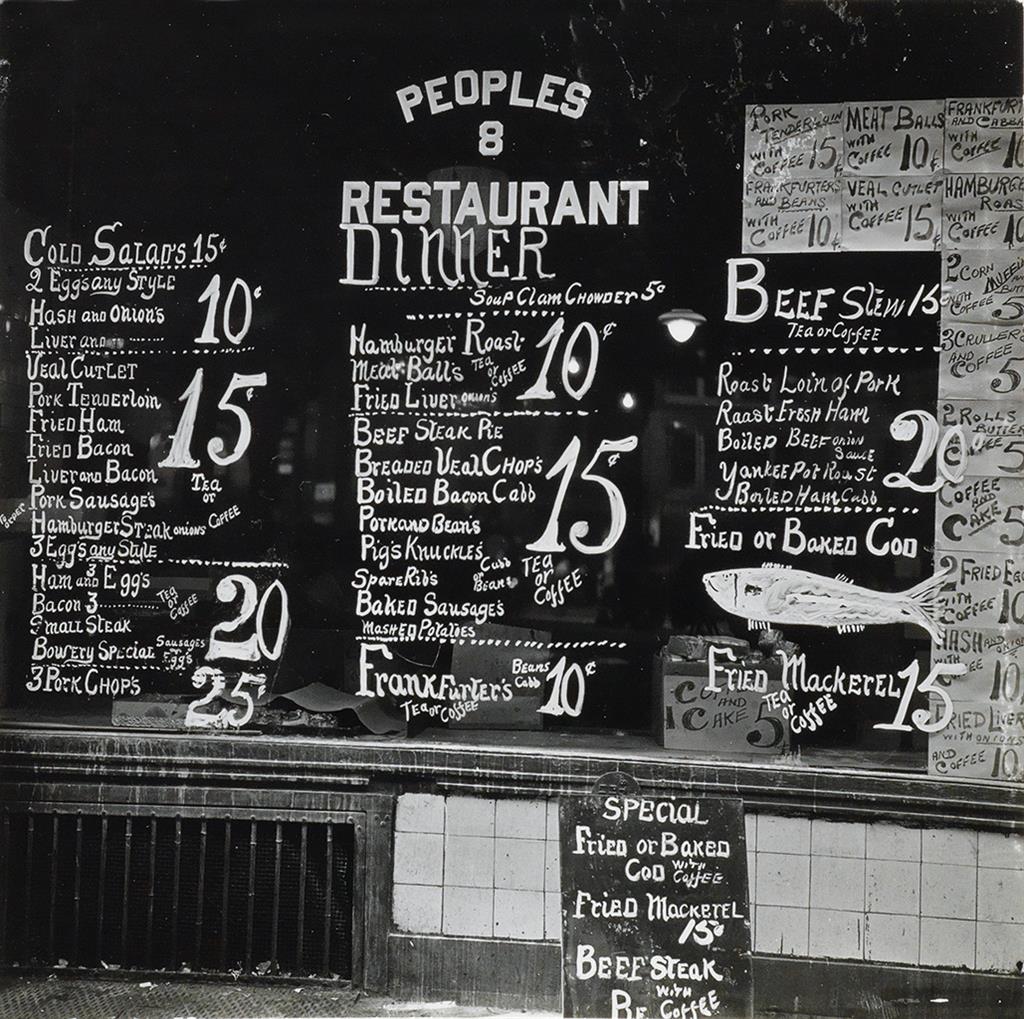 PEOPLES
8
RESTAURANT
DINNER
COLD SALAD'S 15¢
2 Eggs any STYLE
HASH and ONION'S
LIVER and
10¢
VEAL CUTLET
PORK TENDERLOIN
FRIED HAM
FRIED BACON
LIVER and BACON
PORK SAUSAGE'S
HAMBURGER STEAK ONIONS COFFEE
3 EGG'S any STYLE
15¢
TEA
or
HAM and 3 EGG'S
BACON 3
SMALL STEAK
BOWERY SPECIAL SAUSAGES
EGG'S
TEA
or
COFFEE
20
3 PORK CHOP'S
25¢
SOUP CLAM CHOWDER 5¢
HAMBURGER ROAST
MEAT BALL'S
FRIED LIVER ONION'S
TEA
or
COFFEE
10¢
BEEF STEAK PIE
BREADED VEAL CHOP'S
BOILED BACON CABB
PORK AND BEAN'S
PIG'S KNUCKLES CABB
or
BEANS
SPARE RIB'S
BAKED SAUSAGE'S
MASHED POTATOES
15¢
TEA
or
COFFEE
FRANKFURTER'S BEANS
CABB
10¢
TEA or COFFEE
BEEF STEW 15
TEA or COFFEE
ROAST LOIN of PORK
ROAST FRESH HAM
BOILED BEEF ONION
SAUCE
YANKEE POT ROAST
BOILED HAM CABB
20¢
FRIED or BAKED COD
FRIED MACKEREL 15¢
TEA
or
COFFEE
AND
CAKE 5
PORK
TENDERLOIN
WITH
COFFEE 15¢
MEAT BALLS
WITH
COFFEE 10¢
FRANKFURT
AND CABBA
WITH
COFFEE 10
FRANKFURTERS
AND BEANS
WITH
COFFEE 10¢
VEAL CUTLET
WITH
COFFEE 15¢
HAMBURGE
ROAST
WITH
COFFEE 10
2 CORN
MUFFIN
BUTT
WITH
COFFEE 5
3 CRULLERS
AND
COFFEE 5
2 ROLLS
BUTTER
COFFEE 5
COFFEE
AND
CAKE 5
2 FRIED EGG
WITH
COFFEE 10
HASH AND ONIONS
WITH
COFFEE 10
FRIED LIVER
WITH ONIONS
AND
COFFEE 10
SPECIAL
FRIED or BAKED
COD WITH
COFFEE
FRIED MACKEREL
15¢
BEEF STEAK
WITH
COFFEE